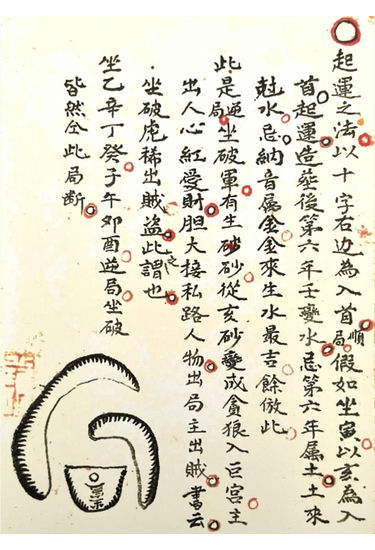 起運之法以十字右边為入首順局假如坐寅以亥為入
首起運造葬後第六年壬變水忌第六年属土土來
尅水忌納音属金金來生水最吉餘倣此
此是逆局坐破軍有生砂砂從亥砂變成貪狼入巨宮主
出人心紅愛財胆大接私路人物出局主出賊書云
坐破虎稀出賊盜此之謂也
坐乙辛丁癸子午卯酉逆局坐破
皆然仝此局断